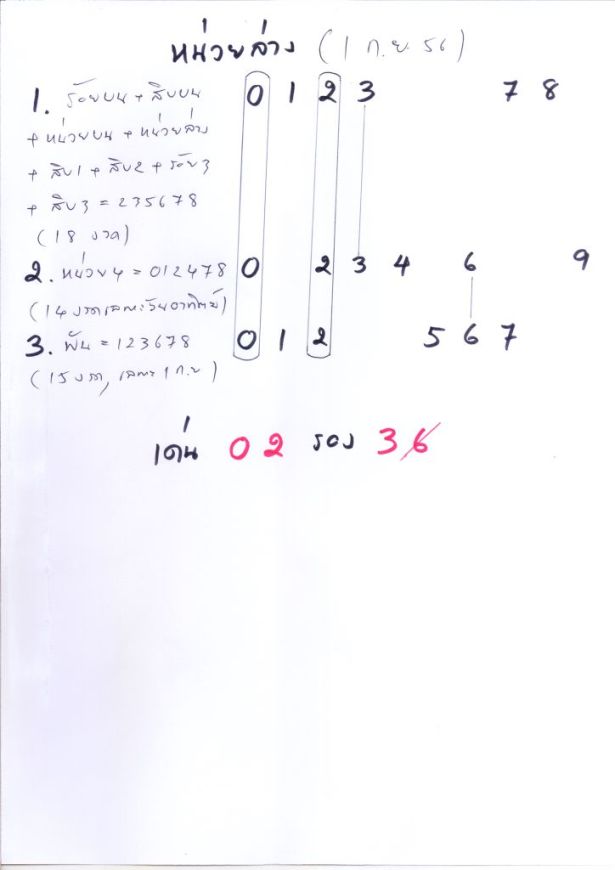 หน่วยล่าง (1 ก.ย. 56)
1. ร้อยบน + สิบบน 0 1 2 3 7 8
+ หน่วยบน + หน่วยล่าง
+ สิบ1 + สิบ2 + ร้อย3
+ สิบ3 = 235678
(18 งวด)
2. หน่วย4 = 012478 0 2 3 4 6 9
(14 งวดเฉพาะวันอาทิตย์)
3. พัน = 123678 0 1 2 5 6 7
(15 งวด, เฉพาะ 1 ก.ย)
เด่น 0 2 รอง 3 6